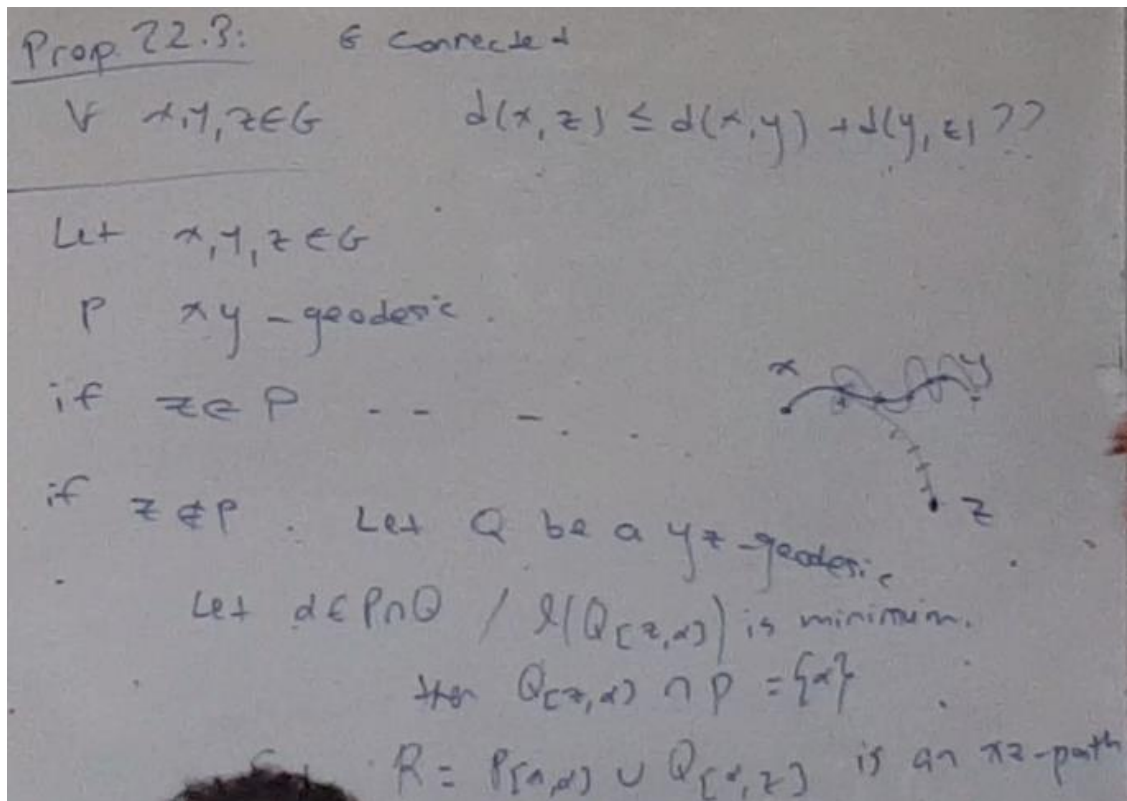 Prop. 22.3: G connected
∀ x,y,z∈G d(x,z) ≤ d(x,y) + d(y,z) ??
Let x,y,z ∈ G
P xy-geodesic.
if z∈P -- -. .
x y
if z∉P. Let Q be a yz-geodesic
z
Let α∈P∩Q / l(Q[z,α]) is minimum.
then Q[z,α] ∩ P = {α}
R = P[x,α] ∪ Q[α,z] is an xz-path